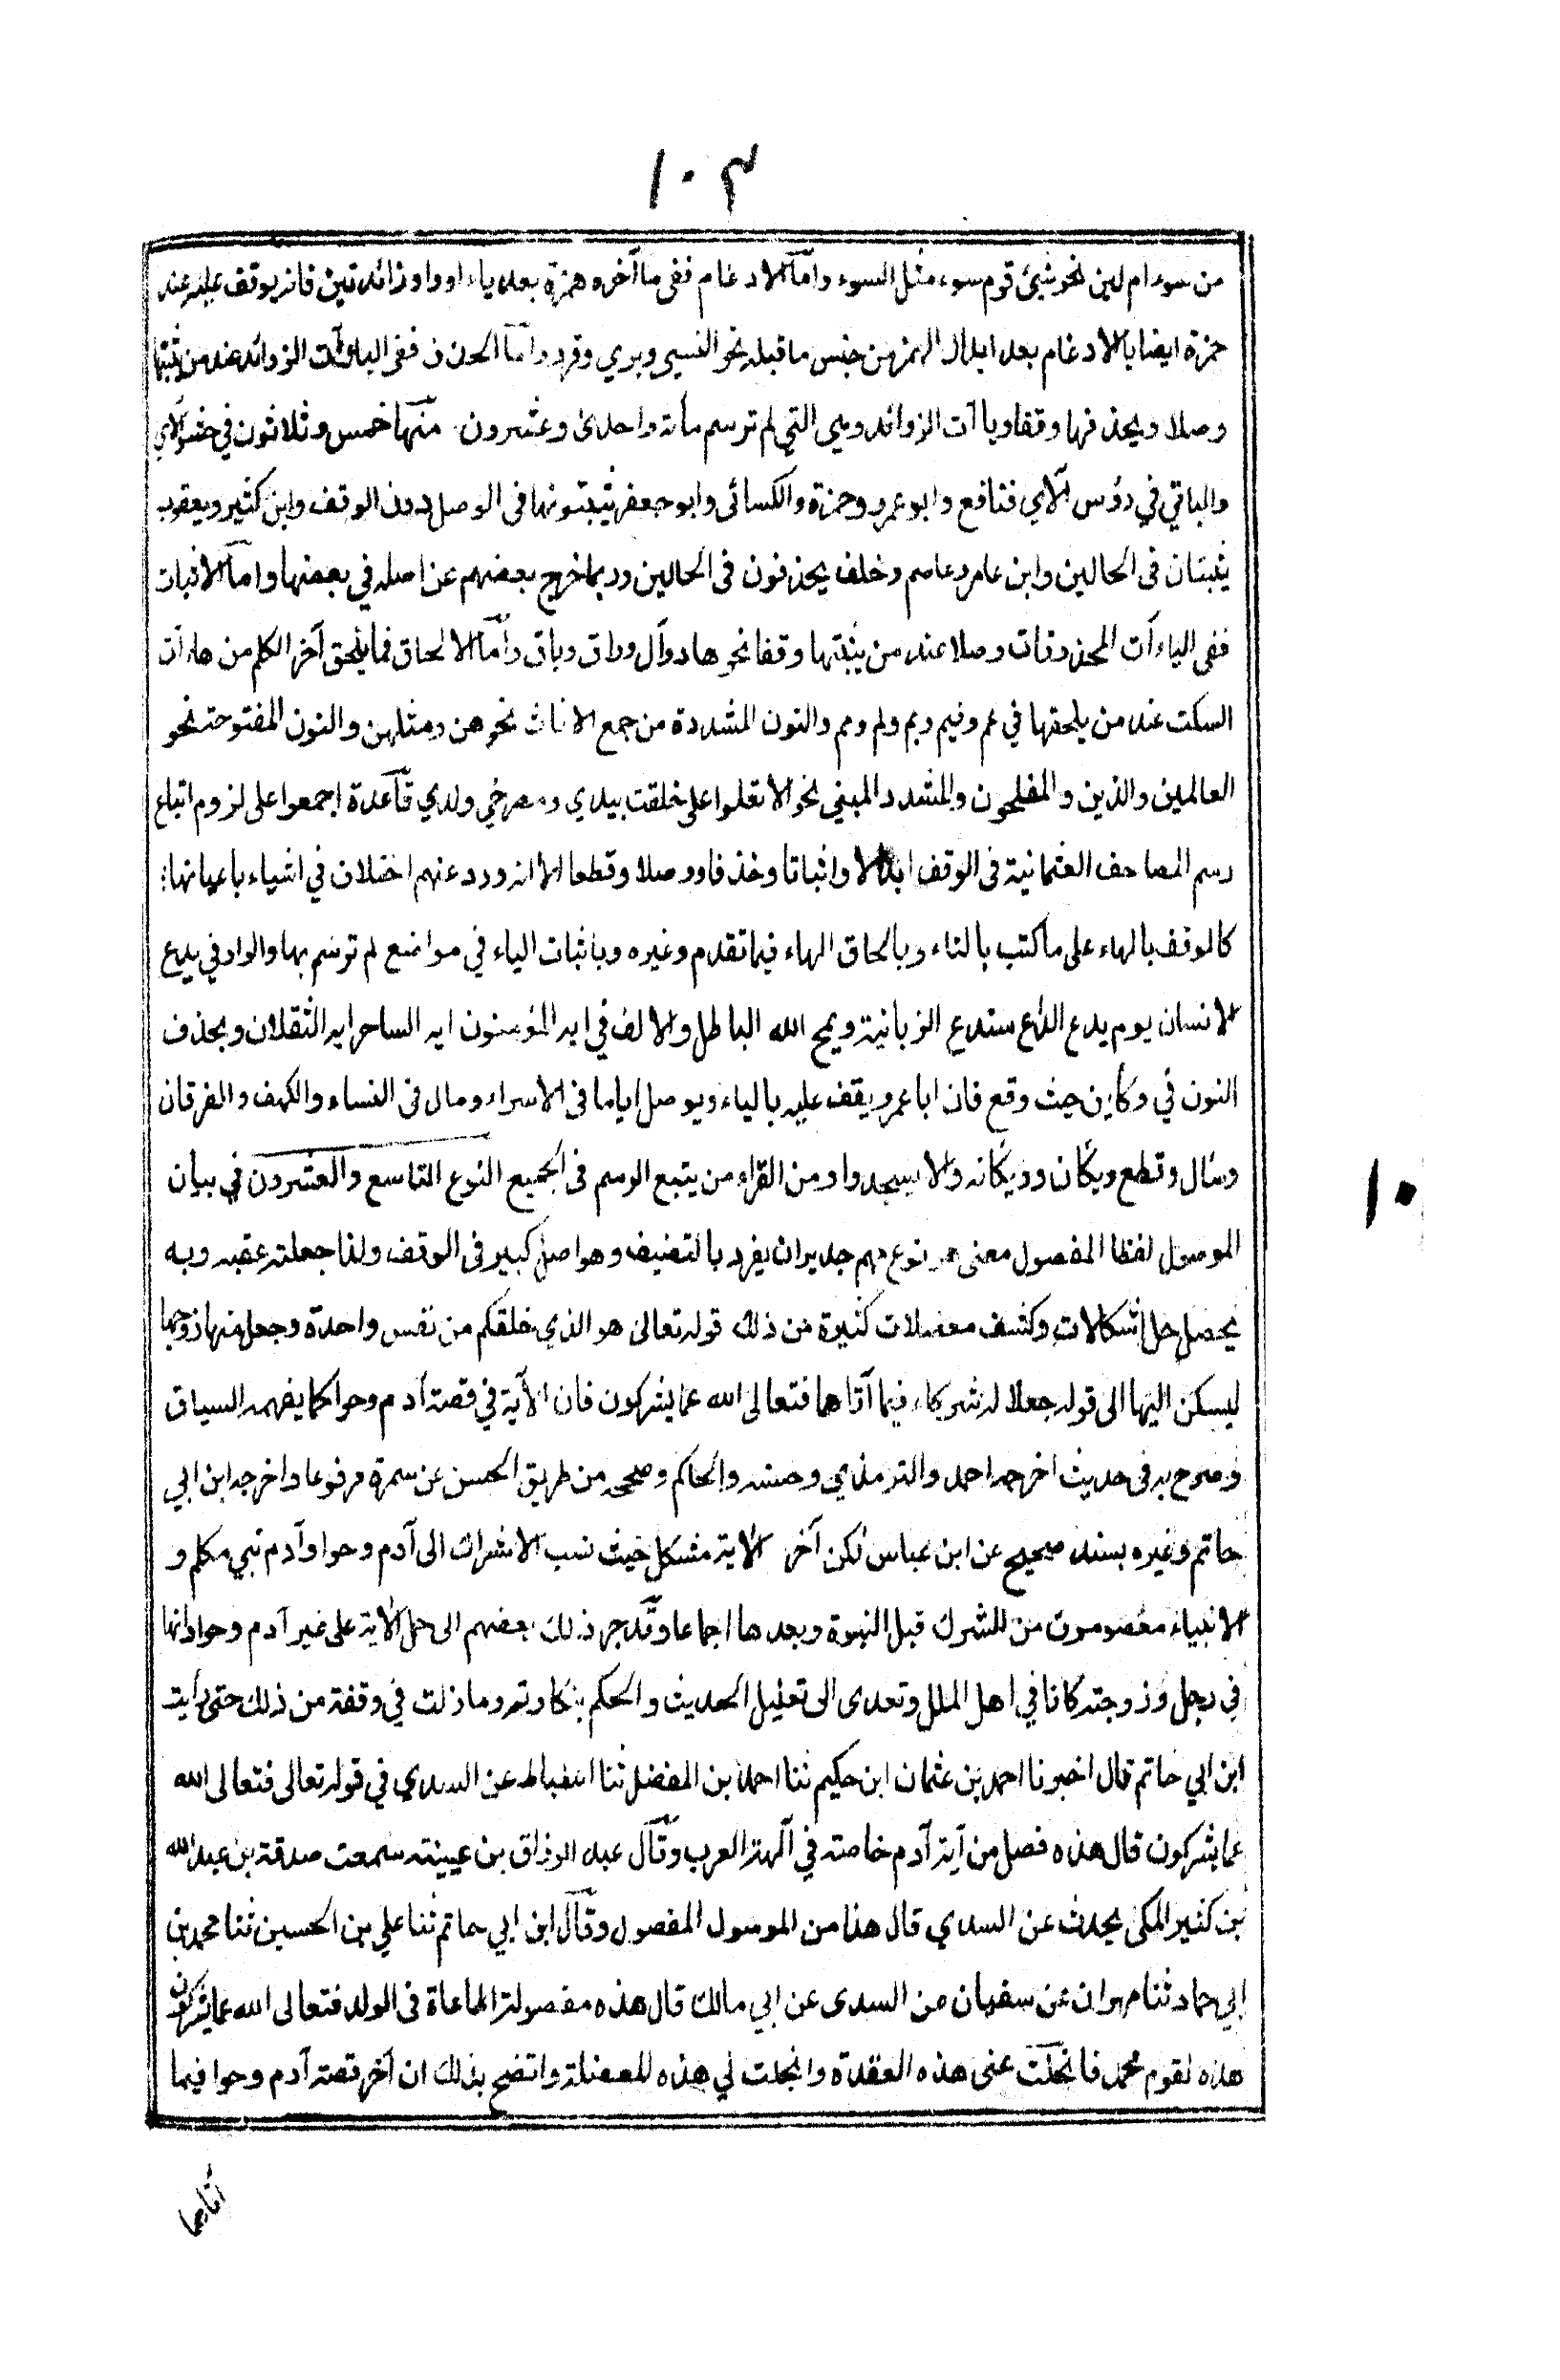 ١٠٣
من سوء ام لين نحو شيئ قوم سوء مثل السوء واما الادغام ففى ما آخره همزة بعد ياء او واو زائدتين فانه يوقف عليه عند
حمزة ايضا بالادغام بعد ابدال الهمز من جنس ما قبله نحو النسي وبري وقرو واما الحذف ففى الياآت الزوائد عند من يثبتها
وصلا ويحذفها وقفا وياآت الزوائد وهي التي لم ترسم مائة واحدى وعشرون منها خمس وثلاثون في حشو الآي
والباقي في رؤس الآي فنافع وابو عمرو وحمزة والكسائى وابو جعفر يثبتونها فى الوصل دون الوقف وابن كثير ويعقوب
يثبتان فى الحالين وابن عامر وعاصم وخلف يحذفون فى الحالين وربما خرج بعضهم عن اصله في بعضها واما الاثبات
ففى الياءآت المحذوفات وصلا عند من يثبتها وقفا نحو هاد ووال وواق وباق واما الالحاق فما يلحق آخر الكلم من هاءآت
السكت عند من يلحقها في عم وفيم وبم ولم ومم والنون المشددة من جمع الاناث نحو هن ومثلهن والنون المفتوحة نحو
العالمين والذين والمفلحون والمشدد المبني نحو الا تعلوا على خلقت بيدي ومصرخي ولدي قاعدة اجمعوا على لزوم اتباع
رسم المصاحف العثمانية فى الوقف ابدالا واثباتا وحذفا ووصلا وقطعا الا انه ورد عنهم اختلاف في اشياء باعيانها
كالوقف بالهاء على ما كتب بالتاء وبالحاق الهاء فيما تقدم وغيره وباثبات الياء في مواضع لم ترسم بها والواو في يدع
الانسان يوم يدع الداع سندع الزبانية ويمح الله الباطل والالف في ايه المؤمنون ايه الساحر ايه الثقلان وبحذف
النون في وكأين حيث وقع فان ابا عمرو يقف عليه بالياء ويوصل اياما فى الاسراء ومال فى النساء والكهف والفرقان
وسال وقطع ويكأن وويكانه والا يسجدوا ومن القراء من يتبع الرسم فى الجميع النوع التاسع والعشرون في بيان
الموصول لفظا المفصول معنى هو نوع مهم جدير ان يفرد بالتصنيف وهو اصل كبير فى الوقف ولذا جعلته عقبه وبه
يحصل حل اشكالات وكشف معضلات كثيرة من ذلك قوله تعالى هو الذي خلقكم من نفس واحدة وجعل منها زوجها
ليسكن اليها الى قوله جعلا له شركاء فيما آتاهما فتعالى الله عما يشركون فان الآية في قصة آدم وحوا كما يفهمه السياق
وصرح به فى حديث اخرجه احمد والترمذي وحسنه والحاكم وصححه من طريق الحسن عن سمرة مرفوعا واخرجه ابن ابي
حاتم وغيره بسند صحيح عن ابن عباس لكن آخر الاية مشكل حيث نسب الاشراك الى آدم وحوا وآدم نبي مكلم و
الانبياء معصومون من الشرك قبل النبوة وبعدها اجماعا وقد جر ذلك بعضهم الى حمل الاية على غير آدم وحوا وانها
في رجل وزوجته كانا في اهل الملل وتعدى الى تعليل الحديث والحكم بنكارته وما زلت في وقفة من ذلك حتى رأيت
ابن ابي حاتم قال اخبرنا احمد بن عثمان ابن حكيم ثنا احمد بن المفضل ثنا اسباط عن السدي في قوله تعالى فتعالى الله
عما يشركون قال هذه فصل من آية آدم خاصته في آلهة العرب وقال عبد الرزاق بن عيينته سمعت صدقة بن عبد الله
بن كثير المكى يحدث عن السدي قال هذا من الموصول المفصول وقال ابن ابي حاتم ثنا علي بن الحسين ثنا محمد بن
ابي حماد ثنا مهران عن سفيان من السدى عن ابي مالك قال هذه مفصولة اطاعاة فى الولد فتعالى الله عما يشركون
هذه لقوم محمد فانحلت عنى هذه العقدة وانجلت لي هذه المعضلة واتضح بذلك ان آخر قصة آدم وحوا فيما
١٠
آتاهما